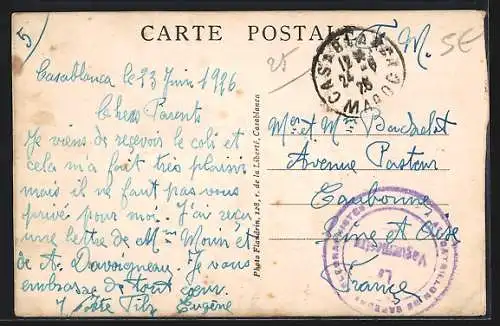 5)
CARTE POSTALE
25
F. M.
5E
CASABLANCA
MAROC
Casablanca le 23 Juin 1926
Chers Parents
Je viens de recevoir le coli et
cela m'a fait très plaisir
mais il ne faut pas vous
privé pour moi. J'ai reçu
une lettre de Mme Mouin et
de A. Davoigneau. Je vous
embrasse de tout cœur.
Votre Fils Eugène
Photo Flandrin, 128, r. de la Liberté, Casablanca
Mr et M Bachelot
Avenue Pasteur
Eaubonne
Seine et Oise
France
Le
Vaguemestre